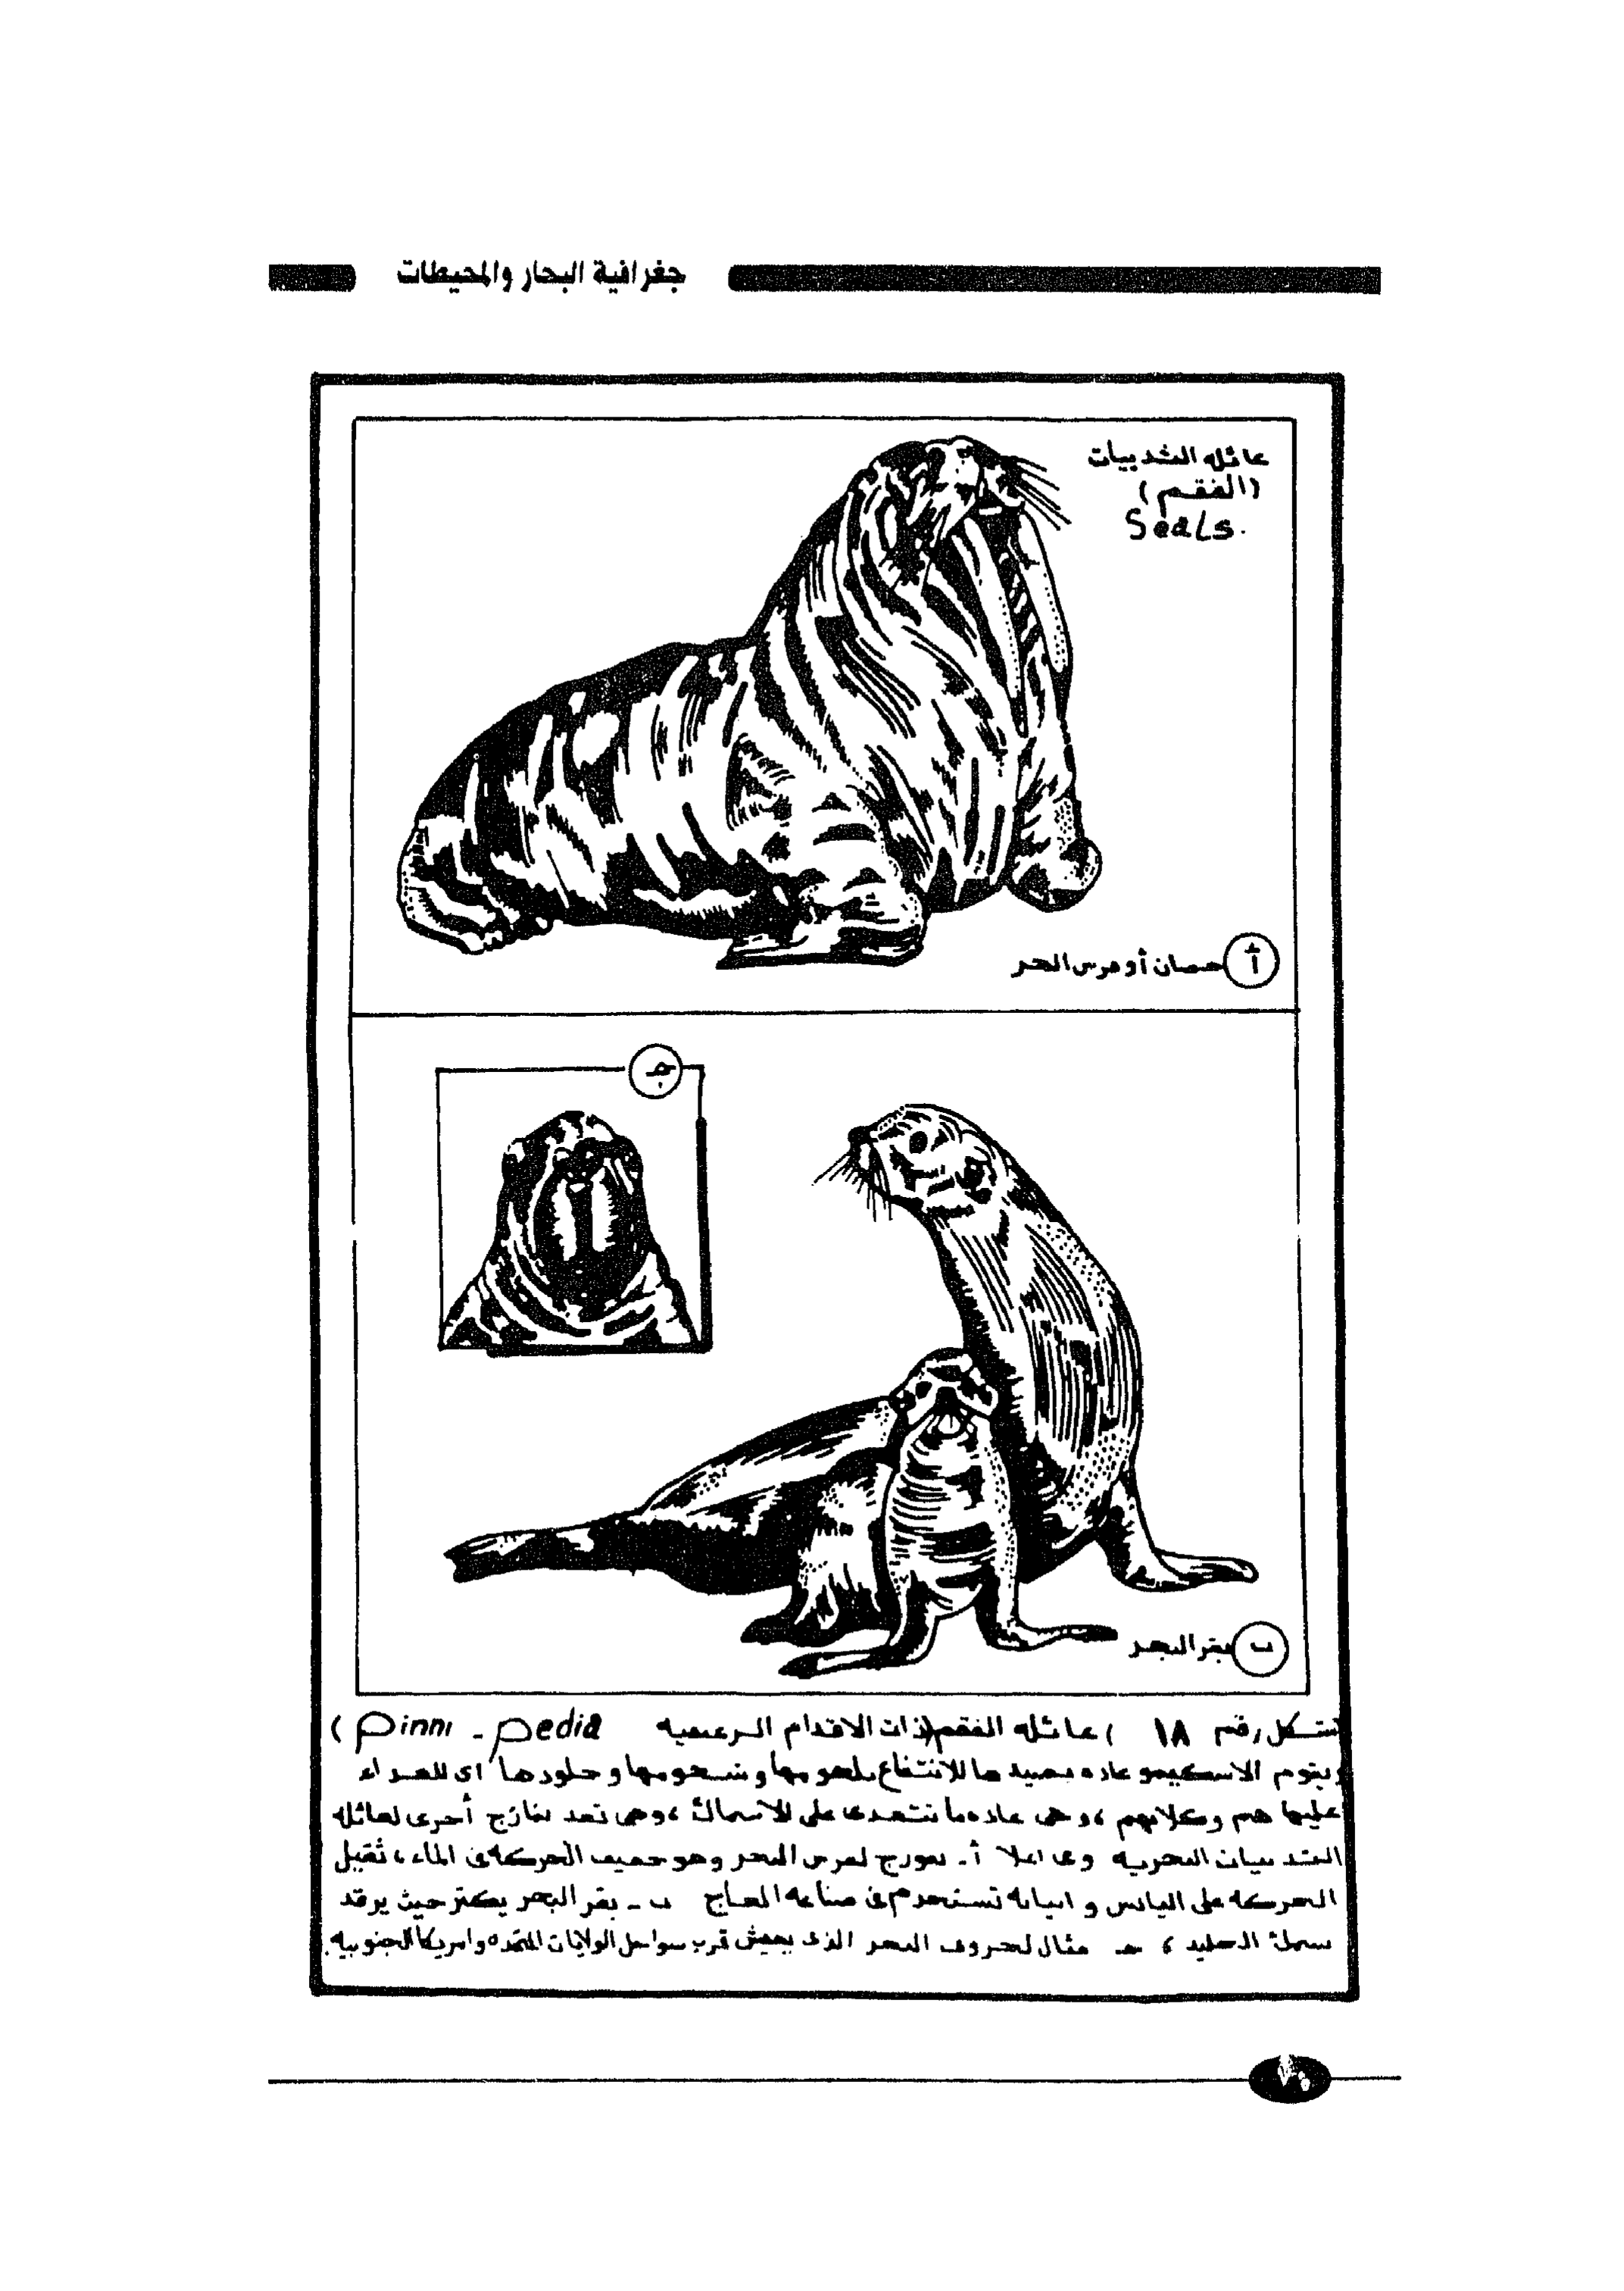 جغرافية البحار والمحيطات
عائله الثدييات
(الفقم)
Seals.
أ حصان أو فرس البحر
جـ
ب بقر البحر
شكل رقم ١٨ ) عائله الفقم (ذات الاقدام الزعنفيه Pinni - Pedia )
ويقوم الاسكيمو عاده بصيدها للانتفاع بلحومها وشحومها وجلودها اى للغذاء
عليها هم وكلابهم ، وهى عاده ما تتغذى على الأسماك ، وهى تعد نماذج أخرى لعائله
الثدييات البحريه وفى اعلا أ- نموذج لفرس البحر وهو خفيف الحركه فى الماء ، ثقيل
الحركه على اليابس و انيابه تستخدم فى صناعه العاج ب - بقر البحر يكثر حيث يرقد
سمك الجليد ، جـ مثال لخروف البحر الذى يعيش قرب سواحل الولايات المتحده وامريكا الجنوبيه .
٧٠